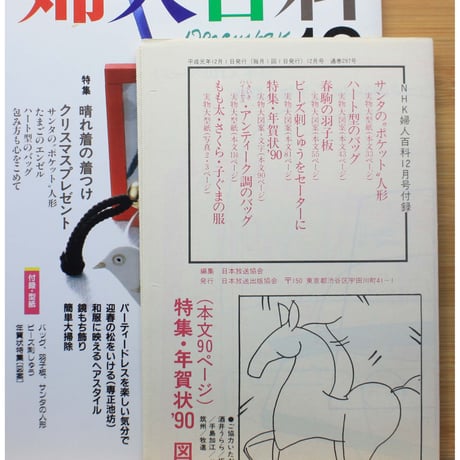 婦人百科
12
特集
晴れ着の着つけ
クリスマスプレゼント
サンタの"ポケット"人形
たまごのエンゼル
ハート型のバッグ
包み方も心をこめて
パーティードレスを楽しい気分で
迎春の松をいける(専正池坊)
和服に映えるヘアスタイル
鏡もち飾り
簡単大掃除
付録・型紙
バッグ、羽子板、サンタの人形
ビーズ刺しゅう
年賀状特集(図案)
平成元年12月1日発行(毎月1回1日発行)12月号 通巻297号
NHK婦人百科12月号付録
サンタの"ポケット"人形
実物大型紙(本文33ページ)
ハート型のバッグ
実物大図案(本文43ページ)
春駒の羽子板
実物大図案(本文55ページ)
ビーズ刺しゅうをセーターに
実物大図案(本文81ページ)
特集・年賀状'90
実物大図案・文字(本文90ページ)
アンティーク調のバッグ
実物大型紙(本文116ページ)
もも太・さくら・子ぐまの服
編集 日本放送協会
発行 日本放送出版協会 〒150 東京都渋谷区宇田川町41-1
(本文90ページ)
特集・年賀状'90 図
●ご協力いただ
酒井うらら/
/手島加江/
筑州/牧進